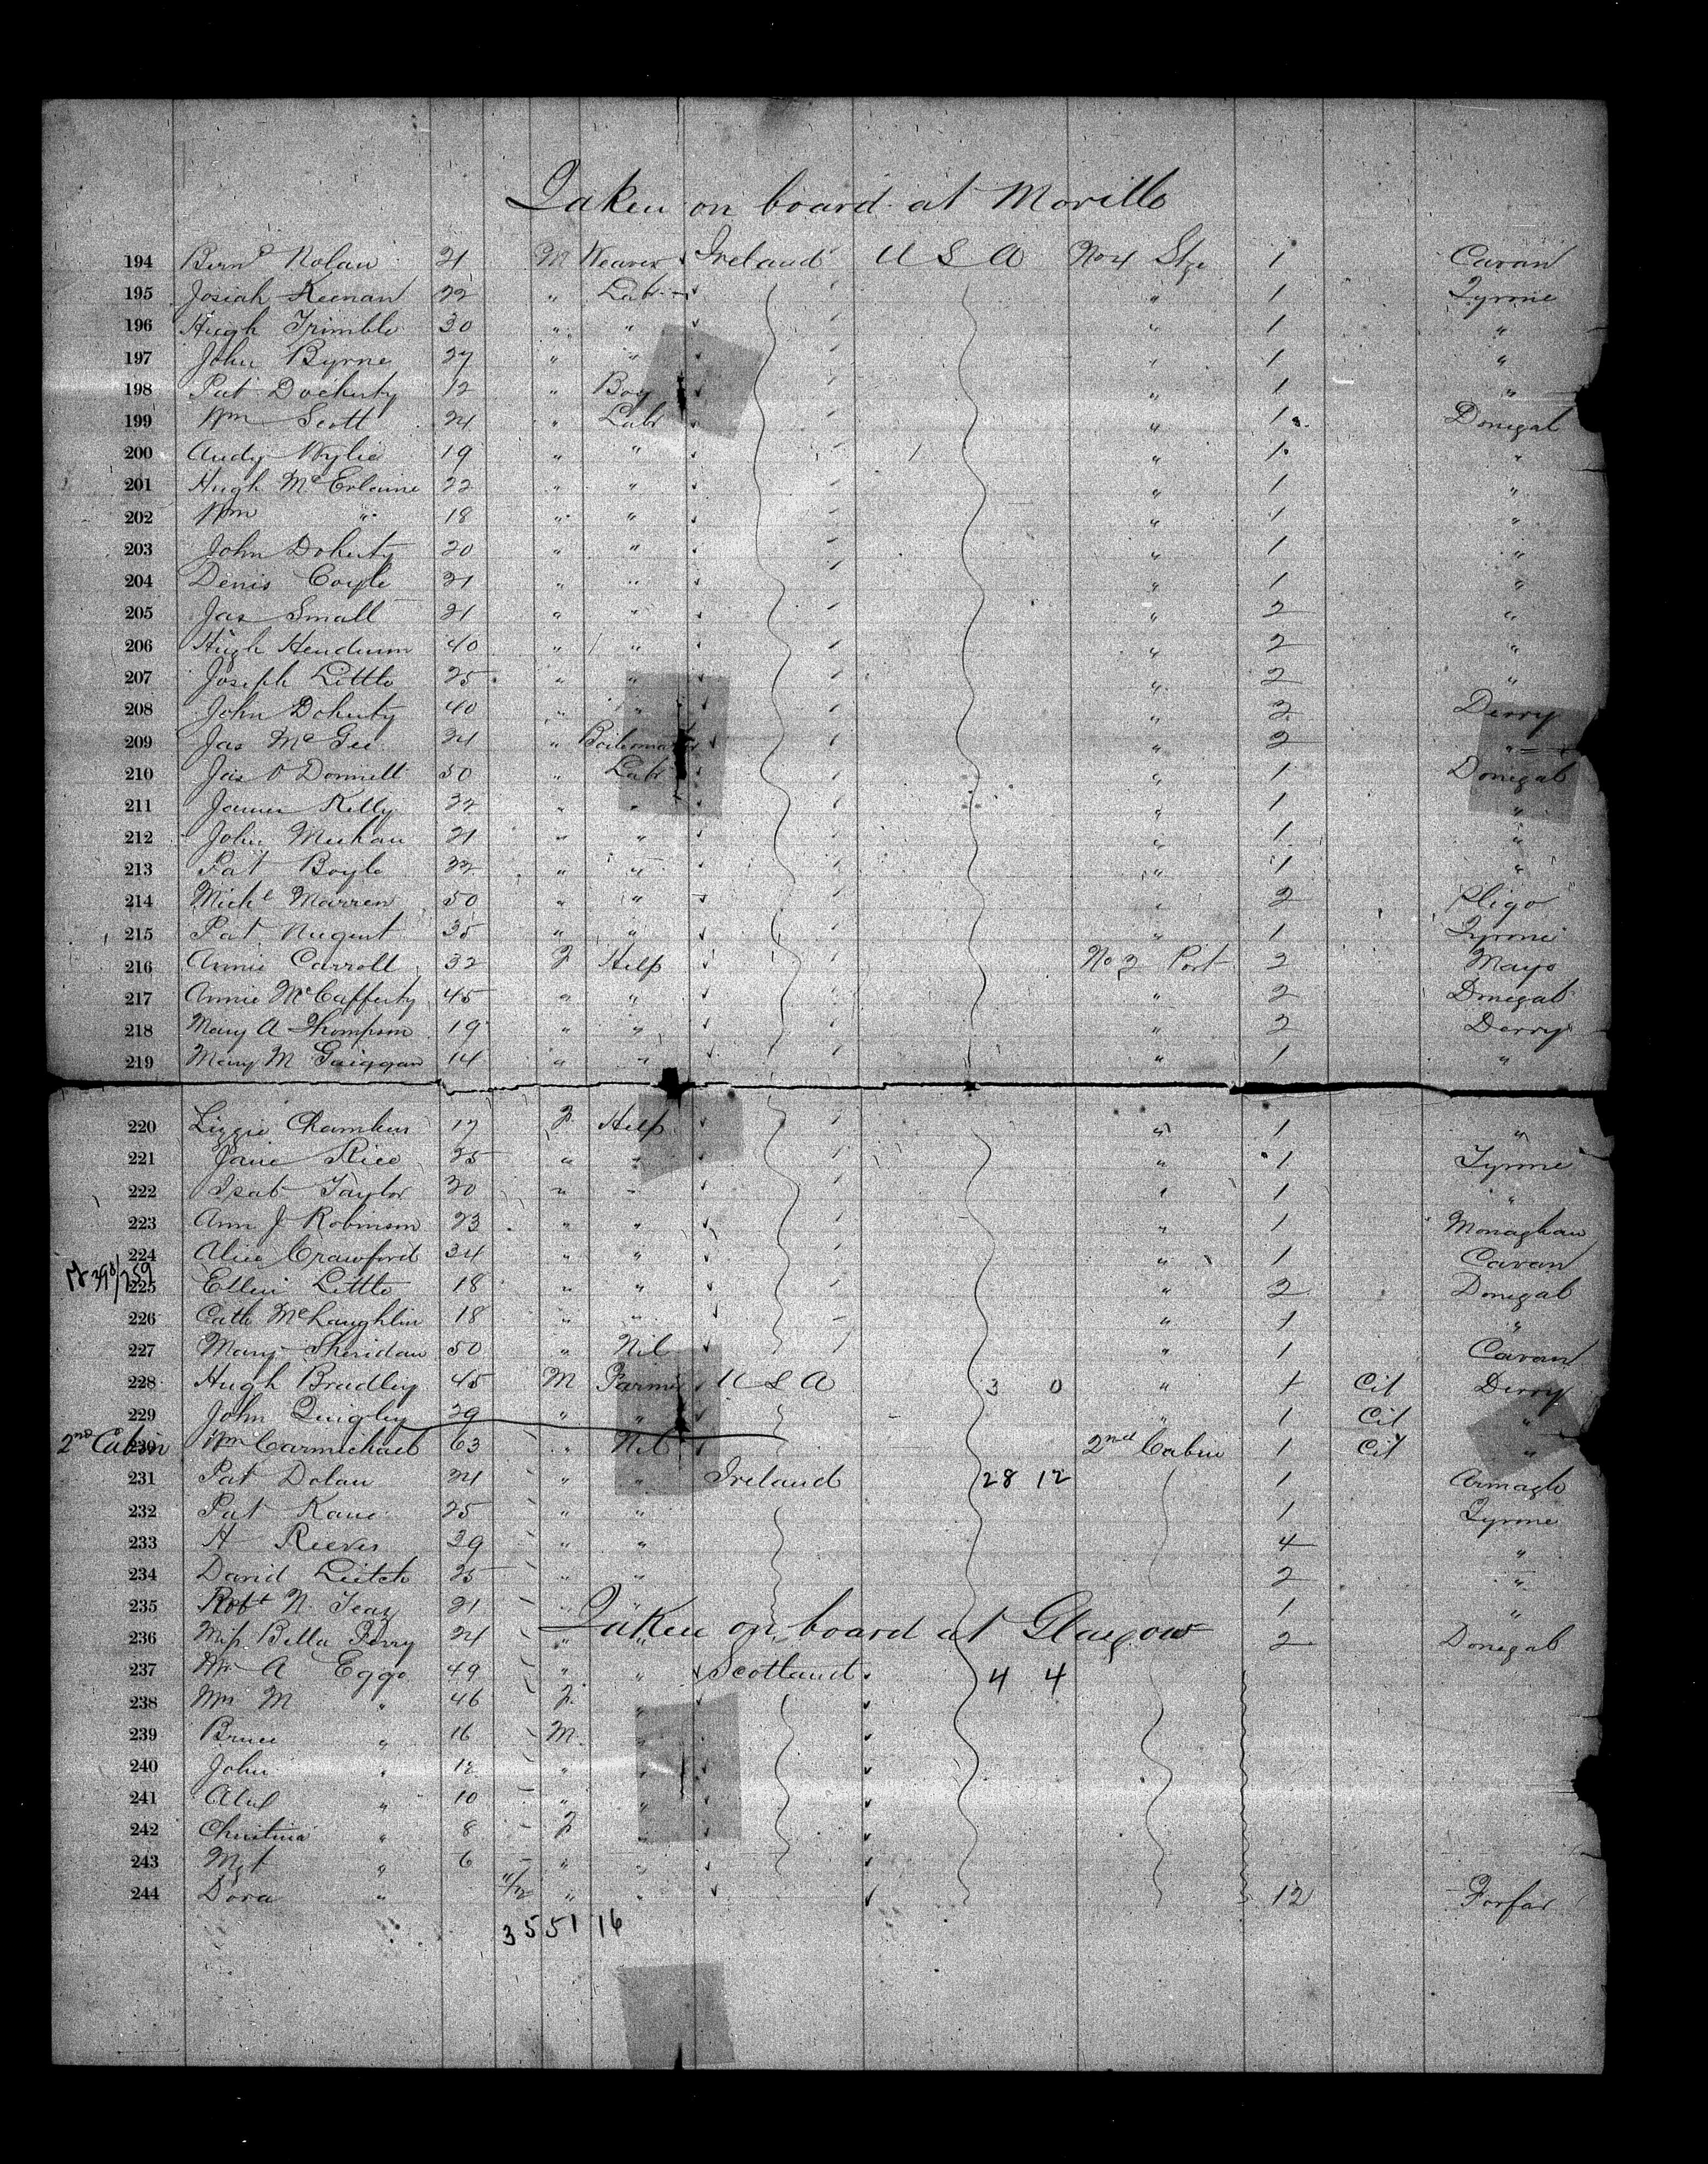 Taken on board at Moville
194 Bernd Nolan 21 M Weaver Ireland U S A No 4 Stge 1 Cavan
195 Josiah Keenan 22 " Labr " 1 Tyrone
196 Hugh Trimble 30 " " " 1 "
197 John Byrne 27 " " " 1 "
198 Pat Docherty 12 " Boy " 1 "
199 Wm Scott 24 " Labr " 1 Donegal
200 Andy Wylie 19 " " " 1 "
201 Hugh McErlaine 22 " " " 1 "
202 Wm " 18 " " " 1 "
203 John Doherty 20 " " " 1 "
204 Denis Coyle 21 " " " 1 "
205 Jas Small 21 " " " 2 "
206 Hugh 40 " " " 2 "
207 Joseph Little 25 " " " 2 "
208 John Doherty 40 " " " 2 Derry
209 Jas McGee 24 " " 2 "
210 Jas O Donnell 50 " Labr " 1 Donegal
211 James Kelly 32 " " " 1 "
212 John Meehan 21 " " " 1 "
213 Pat Boyle 22 " " " 1 "
214 Michl Marren 50 " " " 2 Sligo
215 Pat Nugent 35 " " " 1 Tyrone
216 Annie Carroll 32 F Help No 2 Port 2 Mayo
217 Annie McCafferty 45 " " " 2 Donegal
218 Mary A Thompson 19 " " " 2 Derry
219 Mary M 14 " " " 1 "
220 Lizzie Chambers 17 F Help " 1 "
221 Jane Rice 25 " " " 1 Tyrone
222 Isab Taylor 20 " " " 1 "
223 Ann J Robinson 23 " " " 1 Monaghan
224 Alice Crawford 34 " " " 1 Cavan
225 Ellen Little 18 " " " 2 Donegal
226 Cath McLaughlin 18 " " " 1 "
227 Mary Sheridan 50 " Nil " 1 Cavan
228 Hugh Bradley 45 M Farmer U S A 3 0 " 1 Cit Derry
229 John Quigley 29 " " " 1 Cit "
2nd Cabin 230 Wm Carmichael 63 " Nil 2nd Cabin 1 Cit "
231 Pat Dolan 24 " " Ireland 28 12 1 Armagh
232 Pat Kane 25 " " 1 Tyrone
233 H Reeves 29 " " 4 "
234 David Leitch 25 " " 2 "
235 Robt N. Teaz 21 " " 1 "
Taken on board at Glasgow
236 Miss Bella Ferry 24 " " 2 Donegal
237 Mr A Eggo 49 " " Scotland 4 4
238 Mrs M " 46 F "
239 Bruce " 16 M "
240 John " 12 " "
241 Alex " 10 " "
242 Christina " 8 F "
243 Mgt " 6 " "
244 Dora " " " 12 Forfar
35 51 16